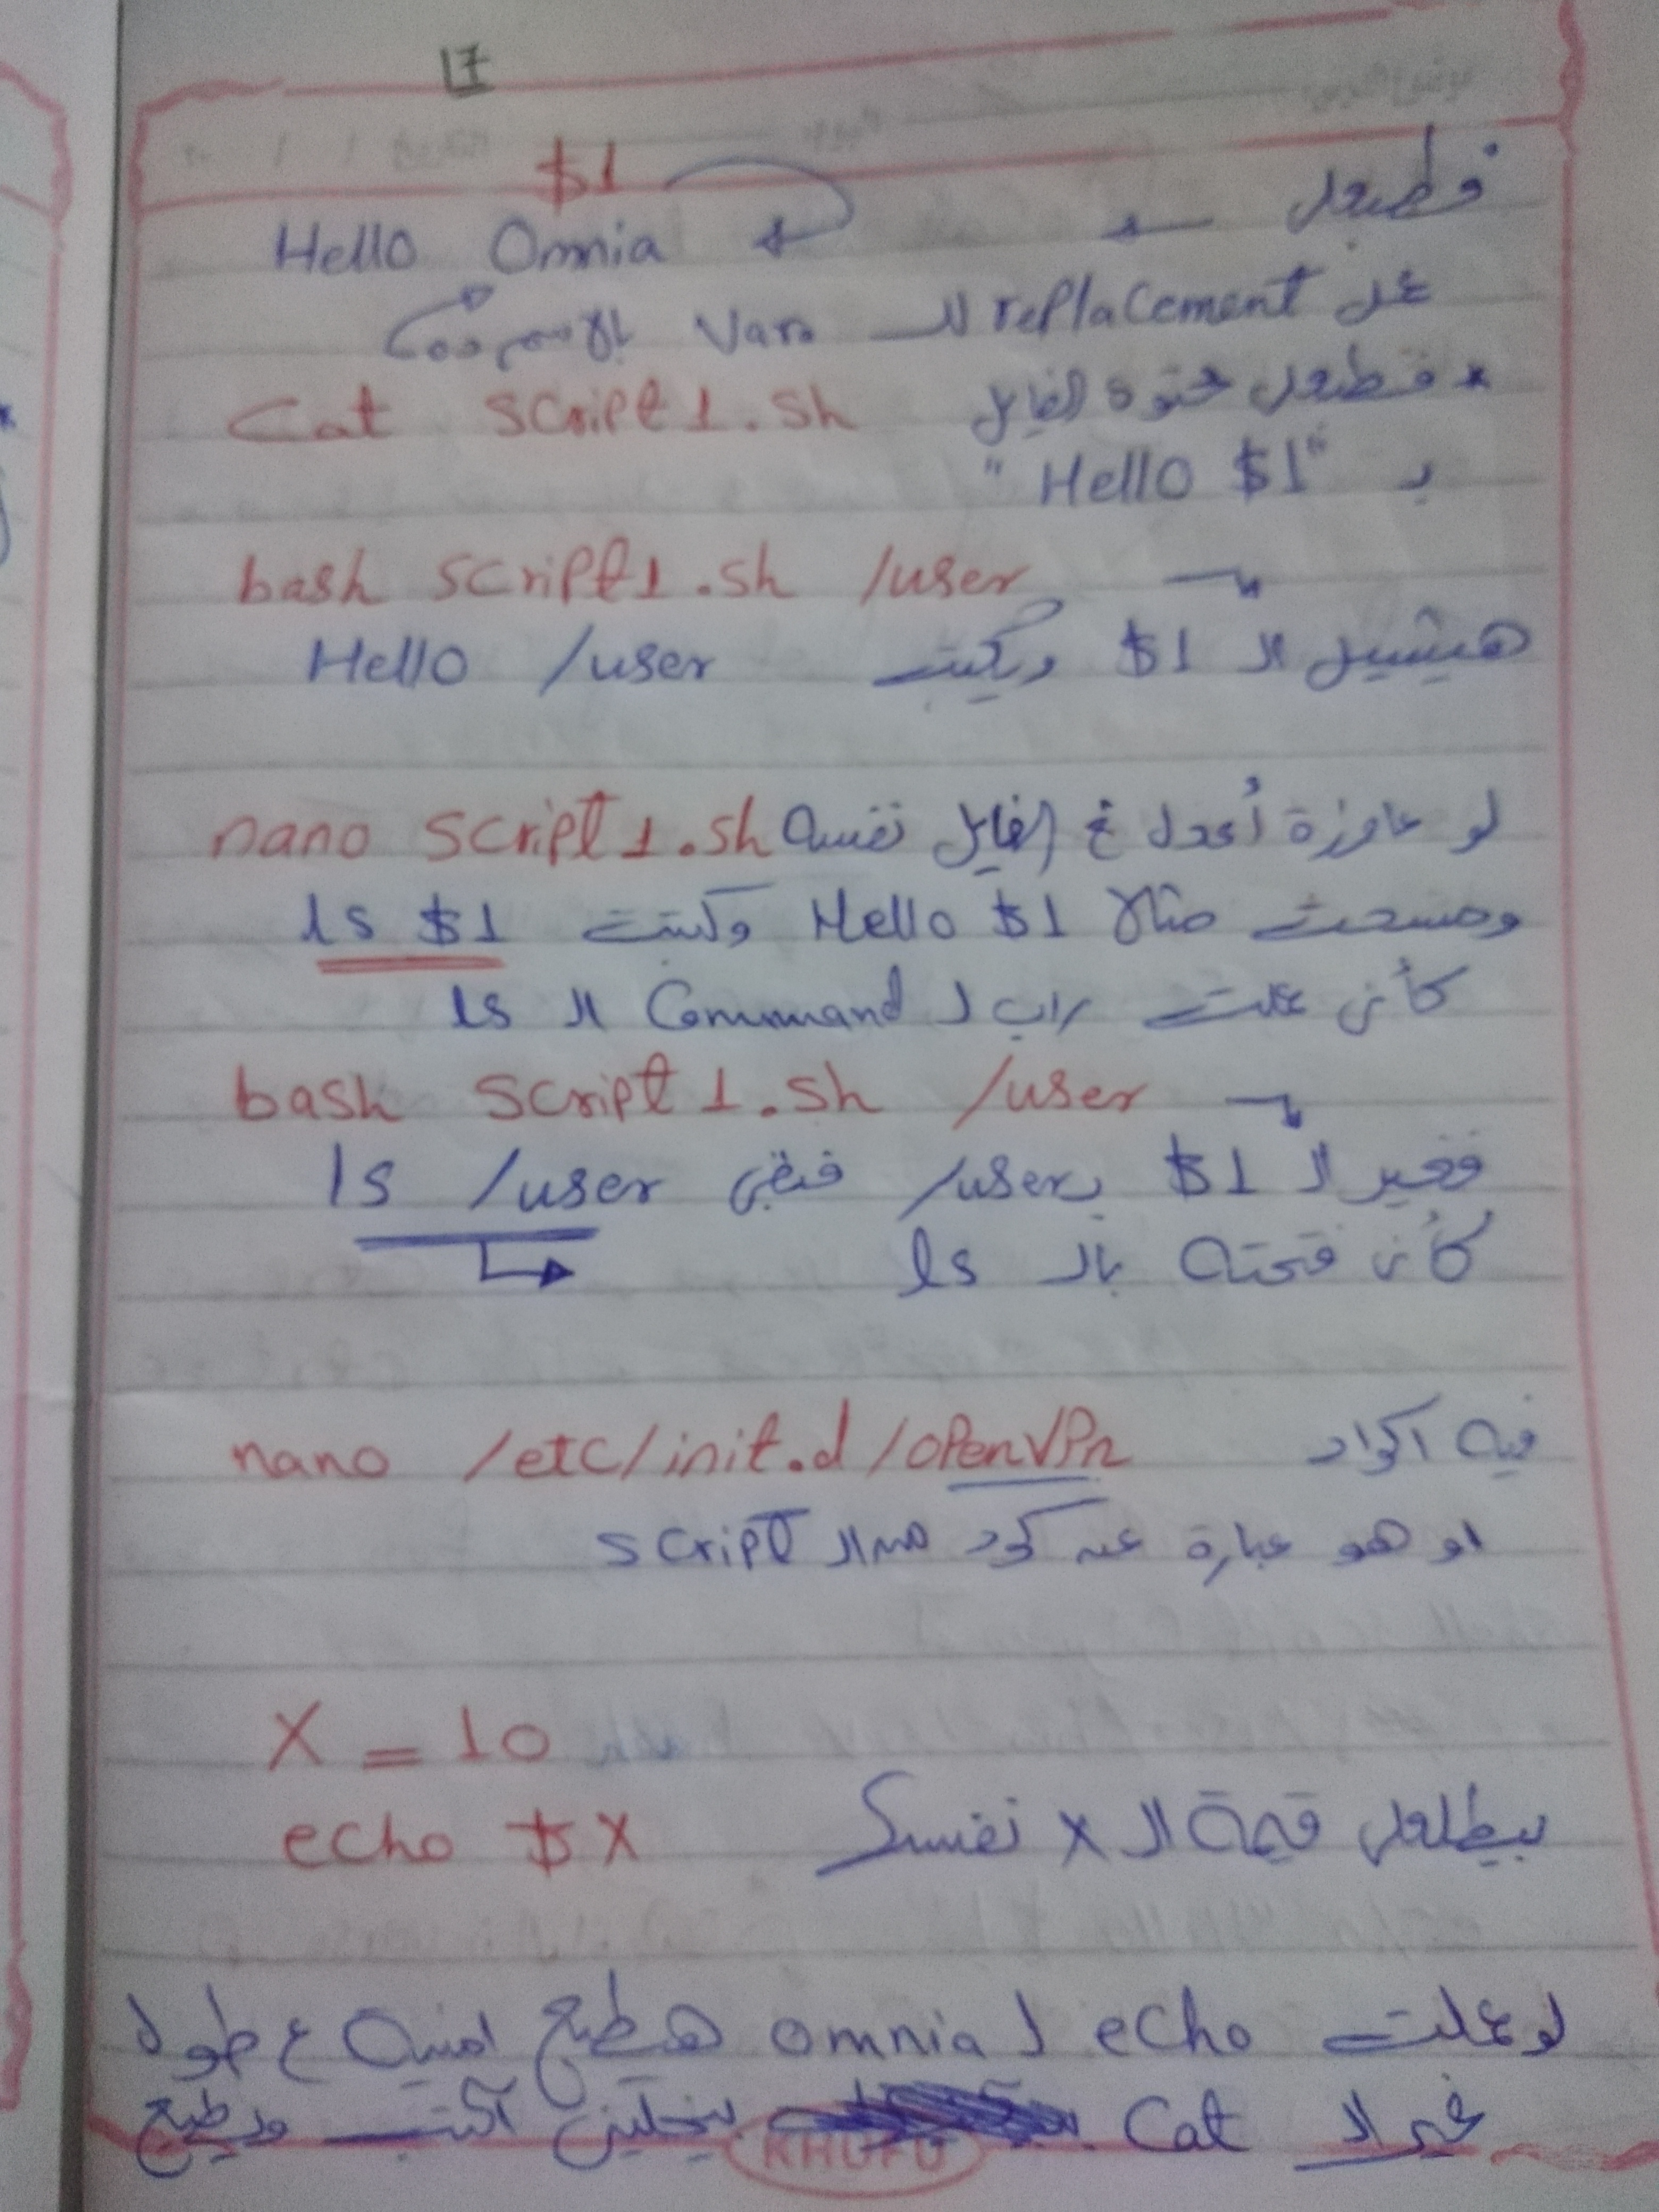 17
$1
فطبعلى ← Hello Omnia
عمل replacement للـ Var بالاسم
* فطبعلى محتوى الفايل cat script1.sh
بـ "Hello $1"
bash script1.sh /user
هيشيل الـ $1 ويكتب Hello /user
لو عاوزة أعدل في الفايل نفسه nano script1.sh
ومسحت مثلا Hello $1 وكتبت ls $1
كأنى عملت راب لـ Command الـ ls
bash script1.sh /user
فغير الـ $1 بـ /user فبقى ls /user
كأنى فتحته بالـ ls
nano /etc/init.d/openVPn فيه اكواد
او هو عبارة عن كود من الـ script
X = 10
echo $X بيطلعلى قيمة الـ X نفسها
لو عملت echo لـ omnia هيطبع امنيه ع طول
غير الـ Cat بيخلينى أكتب ويطبع
KHUFU